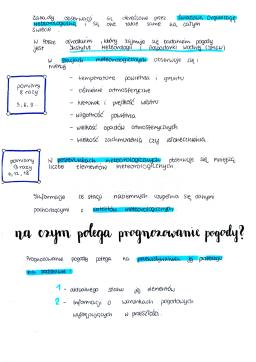 Zasady obserwacji są określone przez Światową Organizację
Meteorologiczną i są one takie same na całym
świecie
W Polsce ośrodkiem, który zajmuje się badaniem pogody
jest Instytut Meteorologii i Gospodarki Wodnej (IMGW)
W stacjach meteorologicznych obserwuje się i
mierzy
pomiary
8 razy
3, 6, 9...
- temperaturę powietrza i gruntu
- ciśnienie atmosferyczne
- kierunek i prędkość wiatru
- wilgotność powietrza
- wielkość opadów atmosferycznych
- wielkość zachmurzenia czy usłonecznienia
pomiary
3 razy
6, 12, 18
W posterunkach meteorologicznych obserwuje się mniejszą
liczbę elementów meteorologicznych
Informacje ze stacji naziemnych uzupełnia się danymi
pochodzącymi z satelitów meteorologicznych
na czym polega prognozowanie pogody?
Prognozowanie pogody polega na przewidywaniu jej przebiegu
na podstawie
1 - aktualnego stanu jej elementów
2 - informacji o warunkach pogodowych
występujących w przeszłości